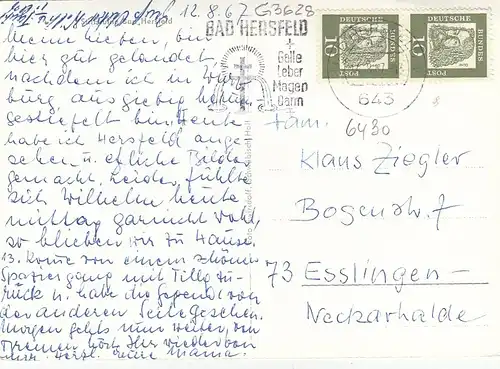 12.8.67 G3628
BAD HERSFELD
+
Galle
Leber
Magen
Darm
643
DEUTSCHE BUNDESPOST 15
DEUTSCHE BUNDESPOST 15
Meine Lieben, bin
hier gut gelandet,
nachdem ich in Würz-
burg, ausgiebig herum-
gestiefelt bin. Heute
habe ich Hersfeld ange-
sehen u. etliche Bilder
gemacht. Leider fühlte
sich Wilhelm heute
mittag garnicht wohl,
so blieben wir zu Hause.
13. Komme von einem schönen
Spaziergang mit Tilly zu-
rück u. habe die Gegend von
der anderen Seite gesehen.
Morgen gehts nun weiter, von
Bremen hört Ihr wieder von
mir. Herzl. Eure Mama.
Fam.
6430
Klaus Ziegler
Bogenstr. 7
73 Esslingen-
Neckarhalde